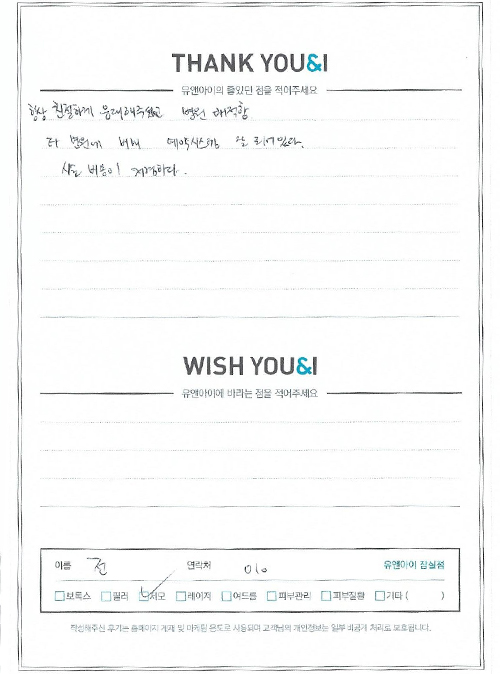 THANK YOU&I
유앤아이의 좋았던 점을 적어주세요
항상 친절하게 응대해주셨고 병원 쾌적함
타 병원에 비해 예약시스템 잘 되어있다.
시술 비용이 저렴하다.
WISH YOU&I
유앤아이에 바라는 점을 적어주세요
이름 전 연락처 010 유앤아이 잠실점
보톡스 필러 제모 레이저 여드름 피부관리 피부질환 기타 ( )
작성해주신 후기는 홈페이지 게재 및 마케팅 용도로 사용되며 고객님의 개인정보는 일부 비공개 처리로 보호됩니다.